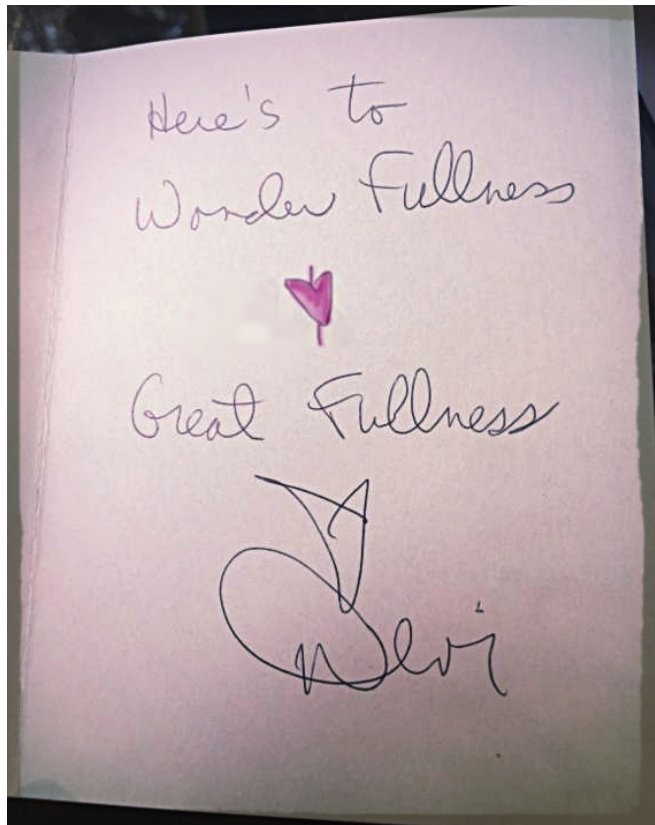 Here's to
Wonder Fullness
Great Fullness
Devi